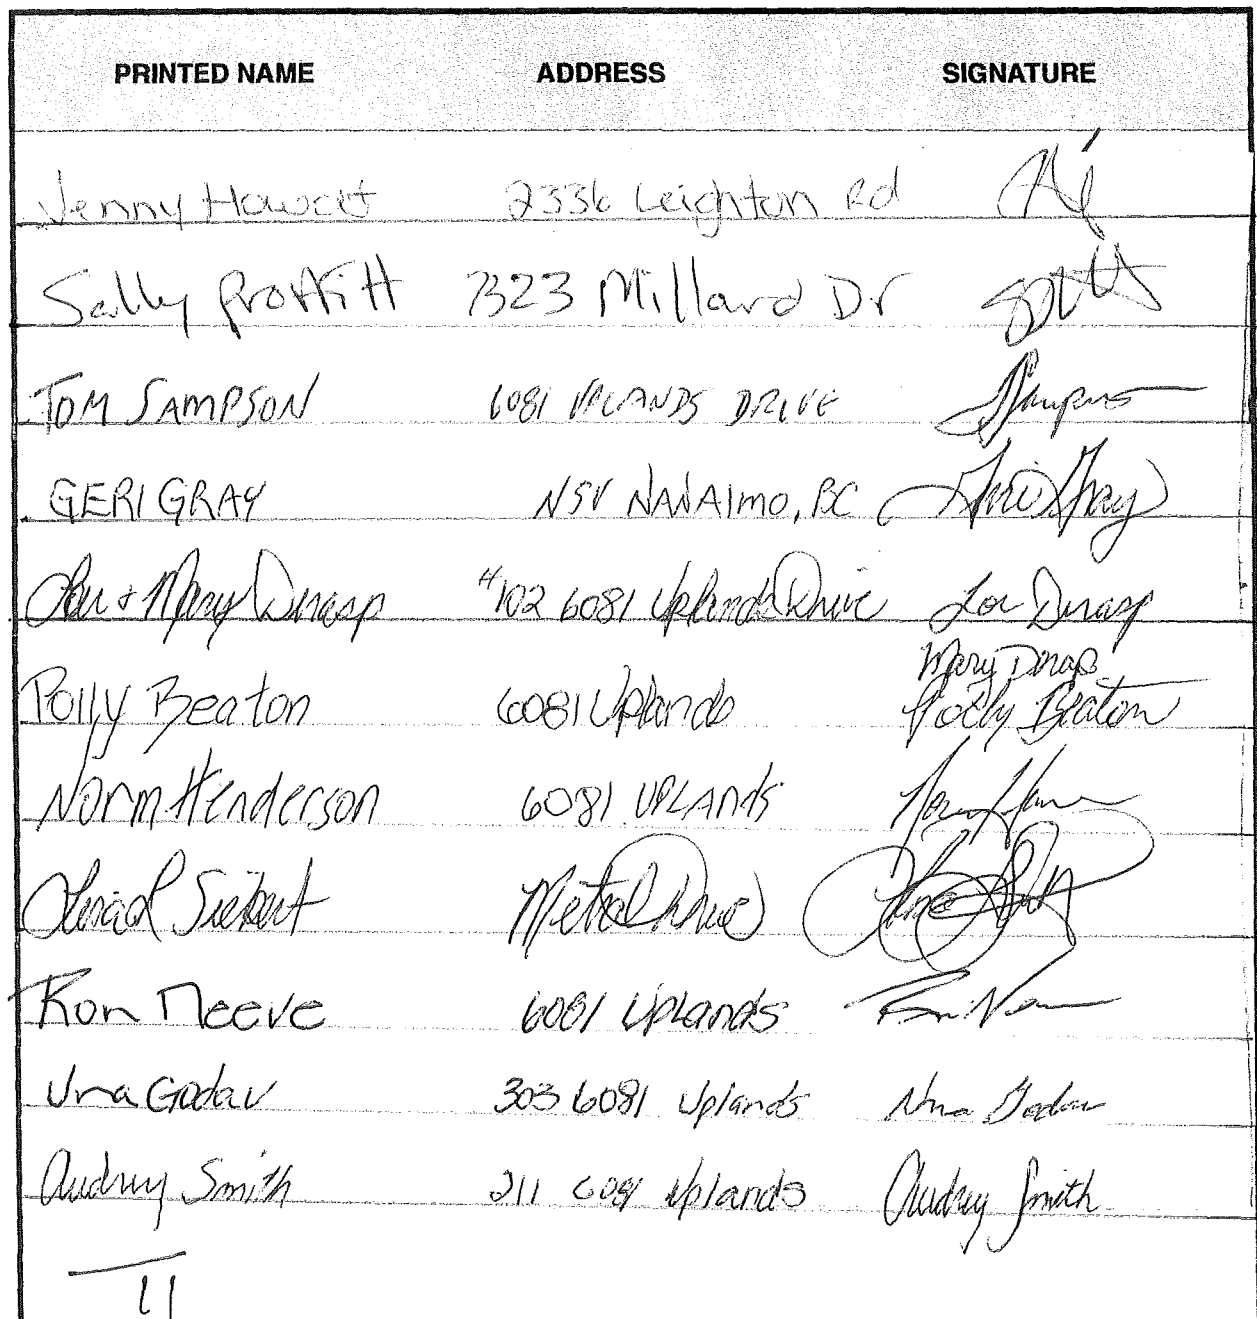 PRINTED NAME ADDRESS SIGNATURE
Jenny Howcat 2336 Leighton Rd
Sally Proffitt 7323 Millard Dr
TOM SAMPSON 6081 UPLANDS DRIVE
GERI GRAY NSV NANAIMO, BC Geri Gray
Lou + Mary Dunasp #102 6081 Uplands Drive Lou Dunasp
Mary Dunasp
Polly Beaton 6081 Uplands Polly Beaton
Norm Henderson 6081 UPLANDS
Siebert Metral Drive
Ron Neeve 6081 Uplands Ron
Una Godau 303 6081 Uplands Una Godau
Audrey Smith 211 6081 Uplands Audrey Smith
11